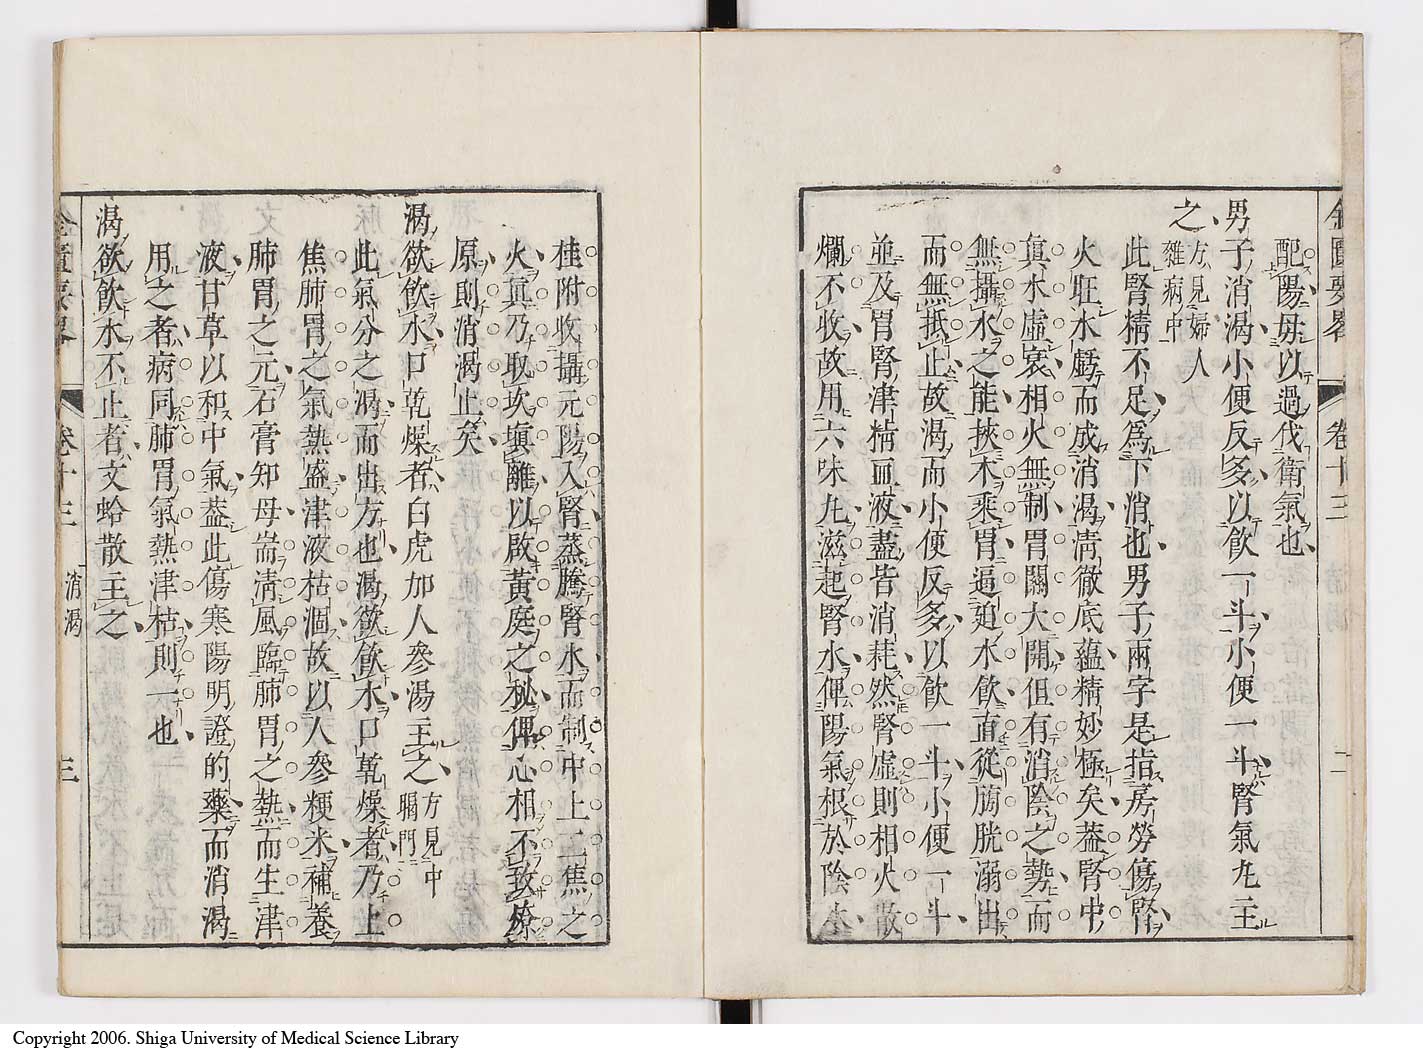 金匱要畧 卷十三 二
配陽毋以過伐衛氣也
男子消渴小便反多以飲一斗小便一斗腎氣丸主
之
方見婦人
雜病中
此腎精不足爲下消也男子兩字是指房勞傷腎
火旺水虧而成消渴淸徹底蘊精妙極矣葢腎中
眞水虛衰相火無制胃關大開但有消陰之勢而
無攝水之能挾木乘胃逼廹水飲直從膀胱溺出
而無抵止故渴而小便反多以飲一斗小便一斗
並及胃腎津精血液盡皆消耗然腎虛則相火散
爛不收故用六味丸滋起腎水俾陽氣根於陰水
桂附收攝元陽入腎蒸騰腎水而制中上二焦之
火眞乃取坎塡離以啟黃庭之秘俾心相不致燎
原則消渴止矣
渴欲飲水口乾燥者白虎加人參湯主之
方見中
暍門
此氣分之渴而出方也渴欲飲水口乾燥者乃上
焦肺胃之氣熱盛津液枯涸故以人參粳米補養
肺胃之元石膏知母耑淸風臨肺胃之熱而生津
液甘草以和中氣葢此傷寒陽明證的藥而消渴
用之者病同肺胃氣熱津枯則一也
渴欲飲水不止者文蛤散主之
金匱要畧 卷十三 消渴 三
Copyright 2006. Shiga University of Medical Science Library